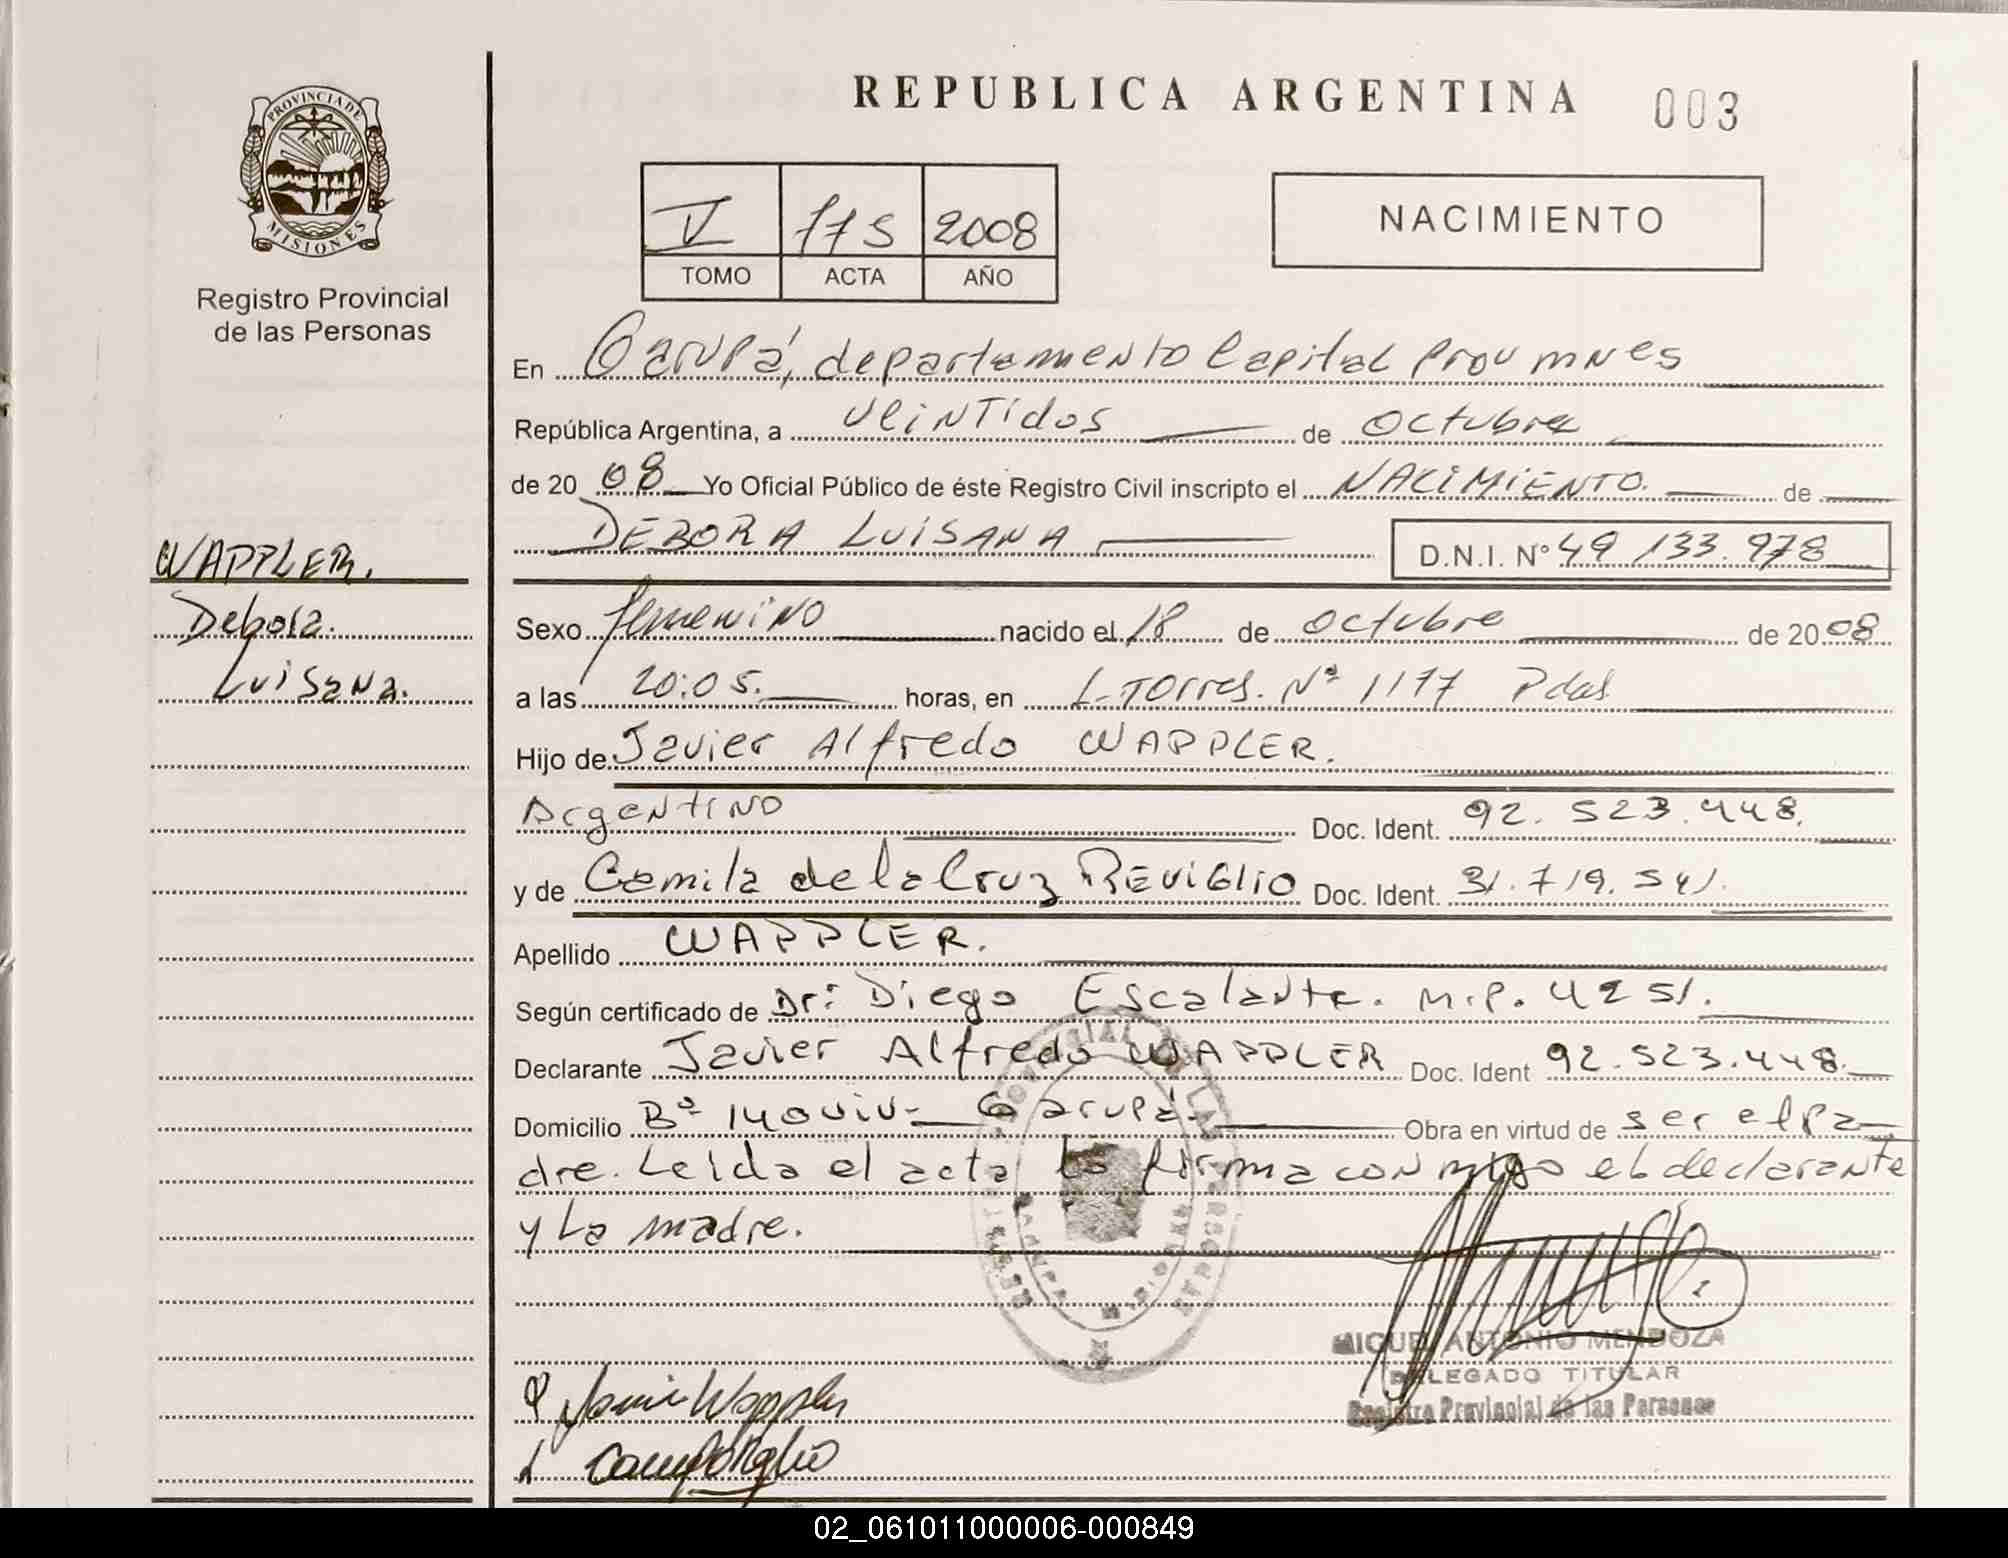 PROVINCIA DE
MISIONES
Registro Provincial
de las Personas
WAPPLER.
Debora.
Luisana.
REPUBLICA ARGENTINA 003
V 775 2008
TOMO ACTA AÑO
NACIMIENTO
En Garupá, departamento Capital Prov mnes
República Argentina, a veintidos de octubre
de 20 08 Yo Oficial Público de éste Registro Civil inscripto el NACIMIENTO. de
DEBORA LUISANA
D.N.I. N° 49 133.978
Sexo femenino nacido el 18 de octubre de 20 08
a las 20:05. horas, en L. Torres. Nº 1177 Pdas
Hijo de Javier Alfredo WAPPLER.
Argentino Doc. Ident. 92.523.448.
y de Camila de la Cruz REVIGLIO Doc. Ident. 31.719.541.
Apellido WAPPLER.
Según certificado de Dr: Diego Escalante. M.P. 4251.
Declarante Javier Alfredo WAPPLER Doc. Ident 92.523.448.
Domicilio Bº 140 viv- Garupá- Obra en virtud de ser el pa-
dre. Leida el acta la firma conmigo el declarante
y la madre.
MIGUEL ANTONIO MENDOZA
DELEGADO TITULAR
Registro Provincial de las Personas
Javier Wappler
02_061011000006-000849